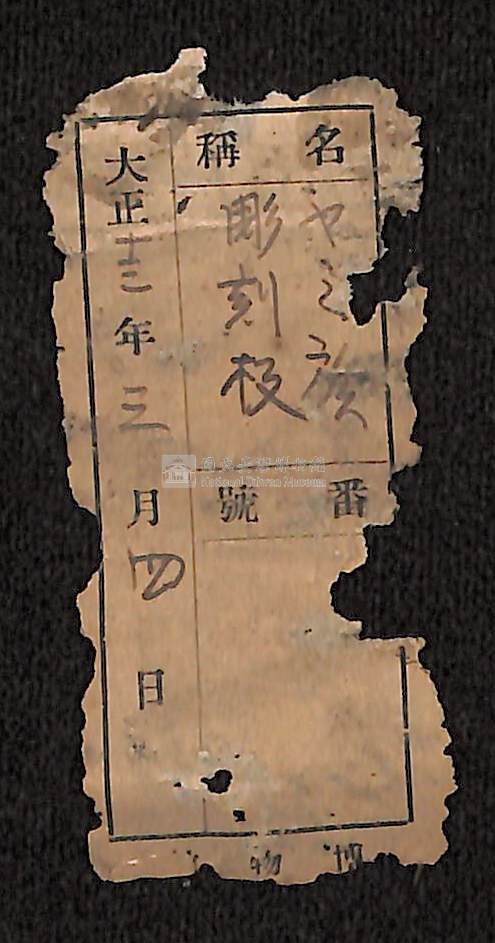 名稱
ヤミ族
彫刻板
番號
大正十三年三月四日
博物
國立臺灣博物館
National Taiwan Museum